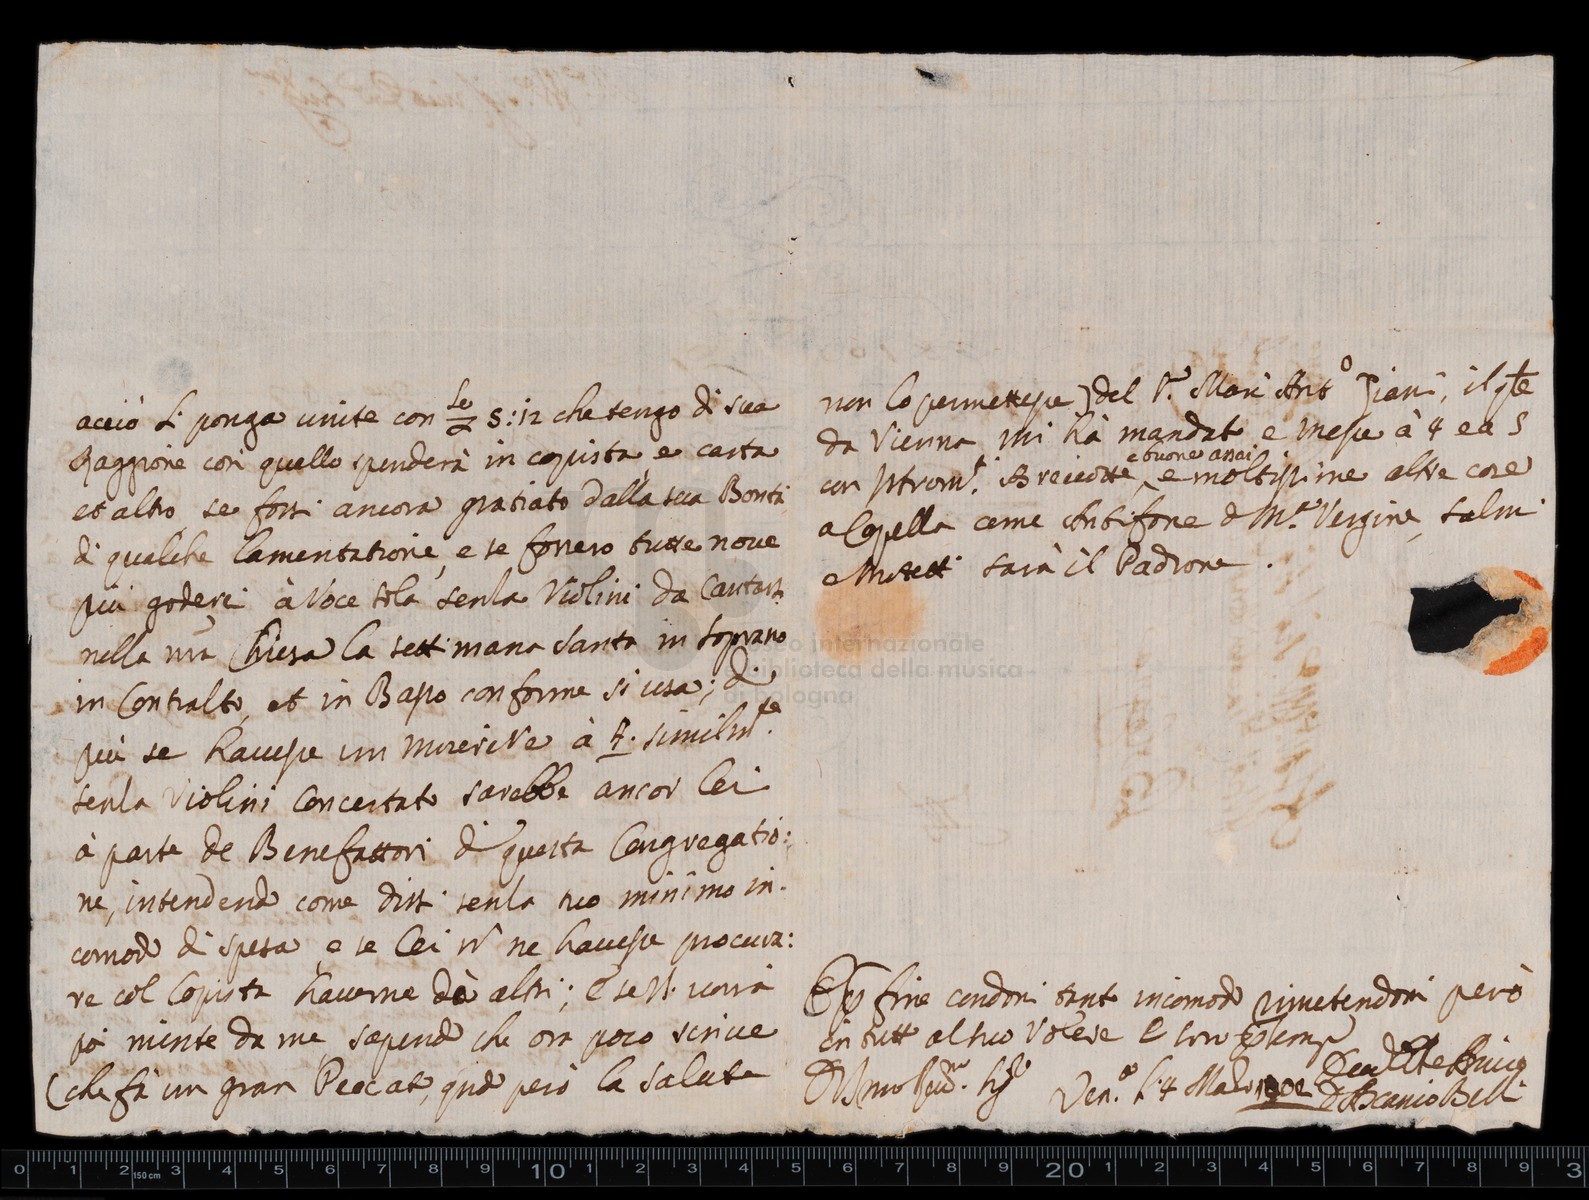 acciò li ponga unite con Le 5:12 che tengo di sua
Raggione così quello spenderà in copista, e carta
et altro, se fossi ancora gratiato dalla sua Bontà
di qualche lamentatione, e se fossero tutte nove
più goderei à Voce sola senza Violini da Cantarsi
nella nrã Chiesa la settimana Santa in Soprano
in Contralto, et in Basso conforme si usa; di
più se havesse un Miserere à 4. similmte
senza Violini Concertato sarebbe ancor lei
à parte de Benefattori di questa Congregatio:
ne, intendendo come dissi senza suo minimo in-
comodo di spesa, e se lei nõ ne havesse procura:
re col Copista haverne da altri; e se N. vorrà
poi niente da me, sapendo che ora poco scrive
(che fà un gran Peccato, qdo però la salute
non lo permettesse) del Sr. Marc Anto Ziani, il qle
da Vienna mi hà mandato e Messe à 4 e a 5
con Istromti. Breviotte, e buone assai e moltissime altre cose
a Capella come Antifone d Ma. Vergine, salmi
e Motetti sarà il Padrone.
E p fine condoni tanto incomodo rimettendomi però
in tutto al suo Volere e son p sempre
Di V.S. mio Sigre.
Ven.a li 4 Marzo 1702
Ascanio Belli
museo internazionale
e biblioteca della musica
di bologna
0 1 2 150 cm 3 4 5 6 7 8 9 10 1 2 3 4 5 6 7 8 9 20 1 2 3 4 5 6 7 8 9 3